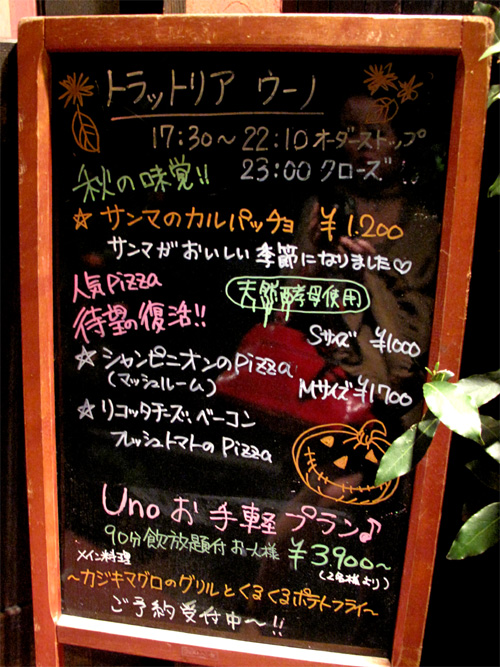 トラットリア ウーノ
17:30～22:10 オーダーストップ
23:00 クローズ
秋の味覚!!
☆ サンマのカルパッチョ ¥1.200
サンマがおいしい季節になりました♡
人気pizza
天然酵母使用
待望の復活!!
☆ シャンピニオンのpizza Sサイズ ¥1000
(マッシュルーム) Mサイズ ¥1700
☆ リコッタチーズ、ベーコン
フレッシュトマトのpizza
Unoお手軽プラン♪
90分飲放題付お一人様 ¥3.900～
メイン料理 (2名様より)
～カジキマグロのグリルとくるくるポテトフライ～
ご予約受付中～!!